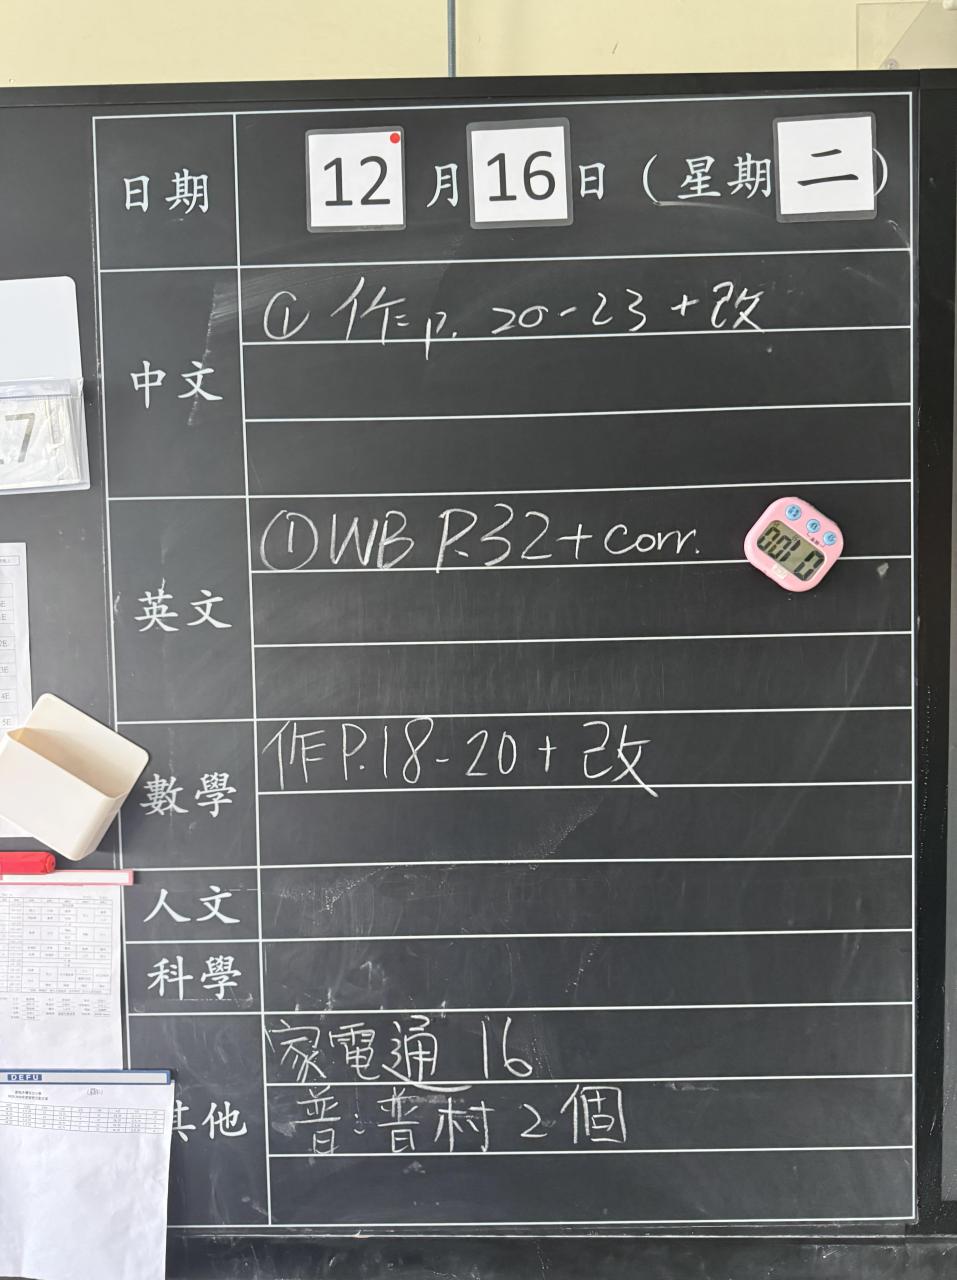 日期 12 月 16 日 (星期 二)
中文
① 作 p. 20-23 + 改
英文
① WB P.32 + corr.
數學
作 P.18-20 + 改
人文
科學
其他
家電通 16
普:普村 2 個
DEFU